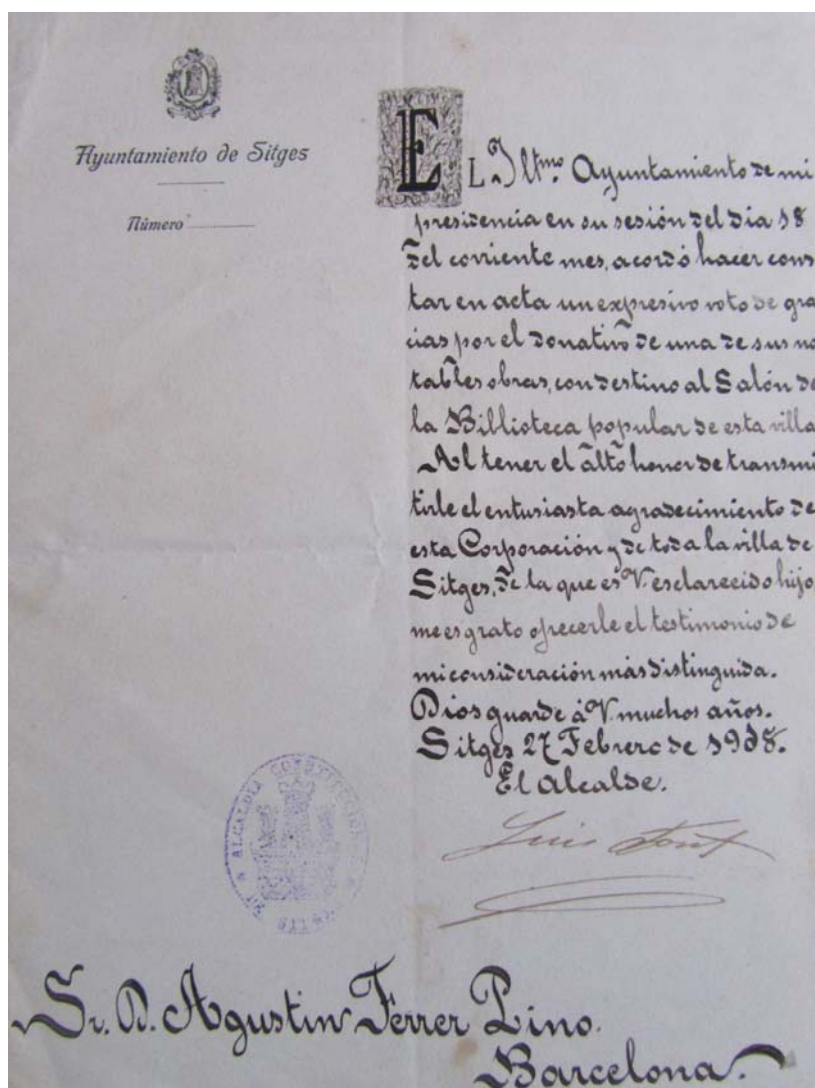 Ayuntamiento de Sitges
Número
EL Iltmo. Ayuntamiento de mi
presidencia en su sesión del dia 18
del corriente mes, acordó hacer cons
tar en acta un expresivo voto de gra
cias por el donativo de una de sus no
tables obras, con destino al Salón de
la Biblioteca popular de esta villa
Al tener el alto honor de transmi
tirle el entusiasta agradecimiento de
esta Corporación y de toda la villa de
Sitges, de la que es V. esclarecido hijo,
me es grato ofrecerle el testimonio de
mi consideración más distinguida.
Dios guarde á V. muchos años.
Sitges 27 Febrero de 1908.
El Alcalde.
Luis Font
ALCALDIA CONSTITUCIONAL
SITGES
Sr. D. Agustin Ferrer Pino.
Barcelona.